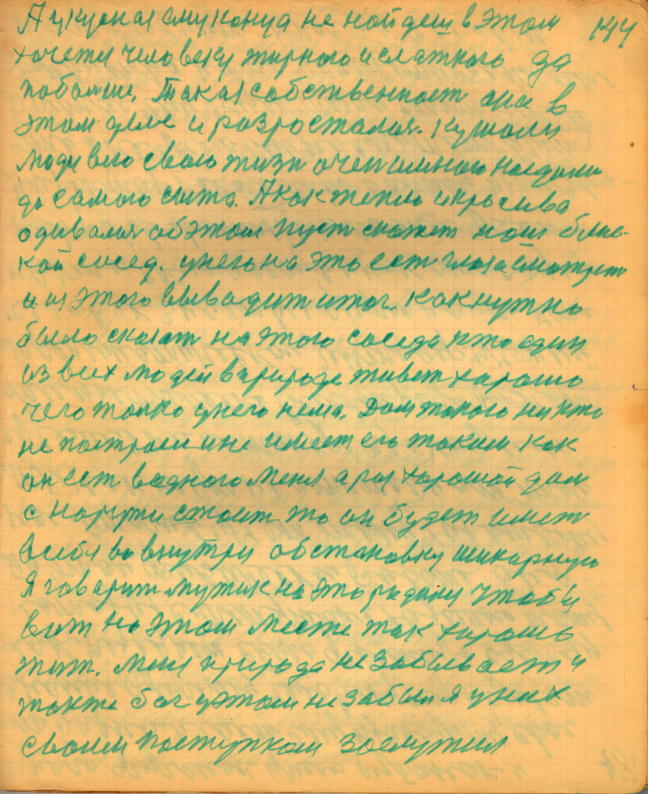 А укусная ему конца не найдеш в этом 144
хочется человеку жирного и слаткого да
побольше. Такая собственност она в
этом деле и розросталася. Кушали
люди всю свою жизн очен много наедалис
до самого сыта. А как тепло и красива
одивалися обэтом пуст скажет наш близ-
кой сосед. унего на это ест глаза смотрет
и из этого выводит итог. как нужно
было сказат на этого соседа што один
из всех людей в природе живет харашо
чего толко унего нема. Дом такого никто
не построел и не имеет его таким как
он ест водного меня а раз харошой дом
с наружи стоит то он будет имет
в себя во внутри обстановку шикарную
Я говарит мужик на это родился чтобы
вот на этом месте так харашо
жит. меня природа не забывает и
также бог уэтом не забыл я уних
своим поступком заслужил